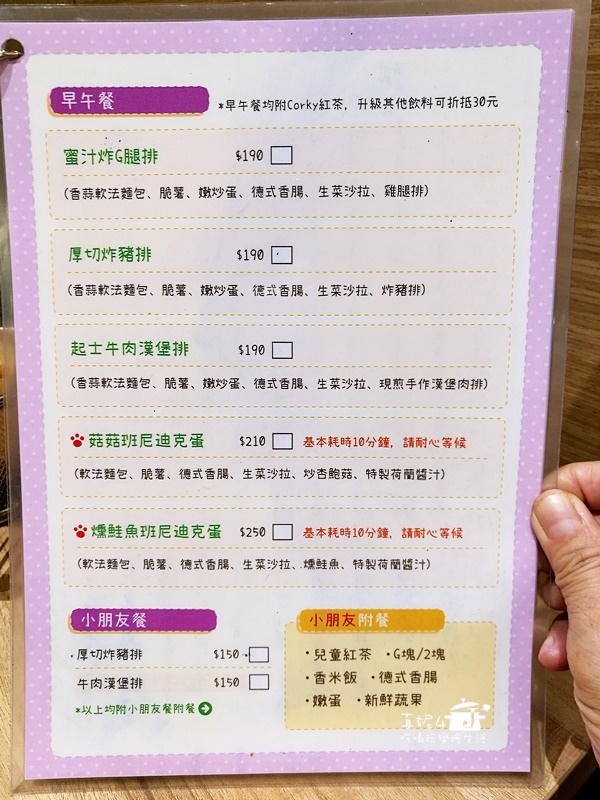 早午餐
*早午餐均附Corky紅茶, 升級其他飲料可折抵30元
蜜汁炸G腿排 $190
(香蒜軟法麵包、脆薯、嫩炒蛋、德式香腸、生菜沙拉、雞腿排)
厚切炸豬排 $190
(香蒜軟法麵包、脆薯、嫩炒蛋、德式香腸、生菜沙拉、炸豬排)
起士牛肉漢堡排 $190
(香蒜軟法麵包、脆薯、嫩炒蛋、德式香腸、生菜沙拉、現煎手作漢堡肉排)
菇菇班尼迪克蛋 $210 基本耗時10分鐘, 請耐心等候
(軟法麵包、脆薯、德式香腸、生菜沙拉、炒杏鮑菇、特製荷蘭醬汁)
燻鮭魚班尼迪克蛋 $250 基本耗時10分鐘, 請耐心等候
(軟法麵包、脆薯、德式香腸、生菜沙拉、燻鮭魚、特製荷蘭醬汁)
小朋友餐
厚切炸豬排 $150
牛肉漢堡排 $150
*以上均附小朋友餐附餐
小朋友附餐
·兒童紅茶 ·G塊/2塊
·香米飯 ·德式香腸
·嫩蛋 ·新鮮蔬果